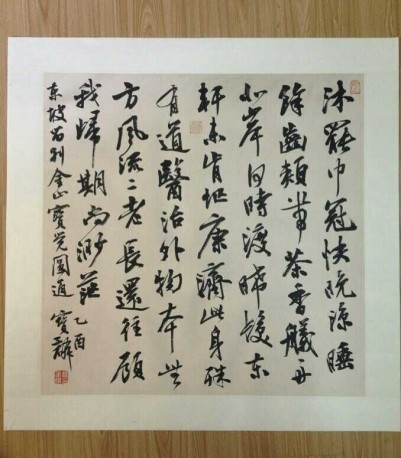 沐罷巾冠快晚涼睡
餘齒頰帶茶香艤舟
北岸何時渡晞髮東
軒未肯忙康濟此身殊
有道醫治外物本無
方風流二老長還往顧
我歸期尚渺茫
東坡留别金山寶覺圓通
乙酉
寶麟